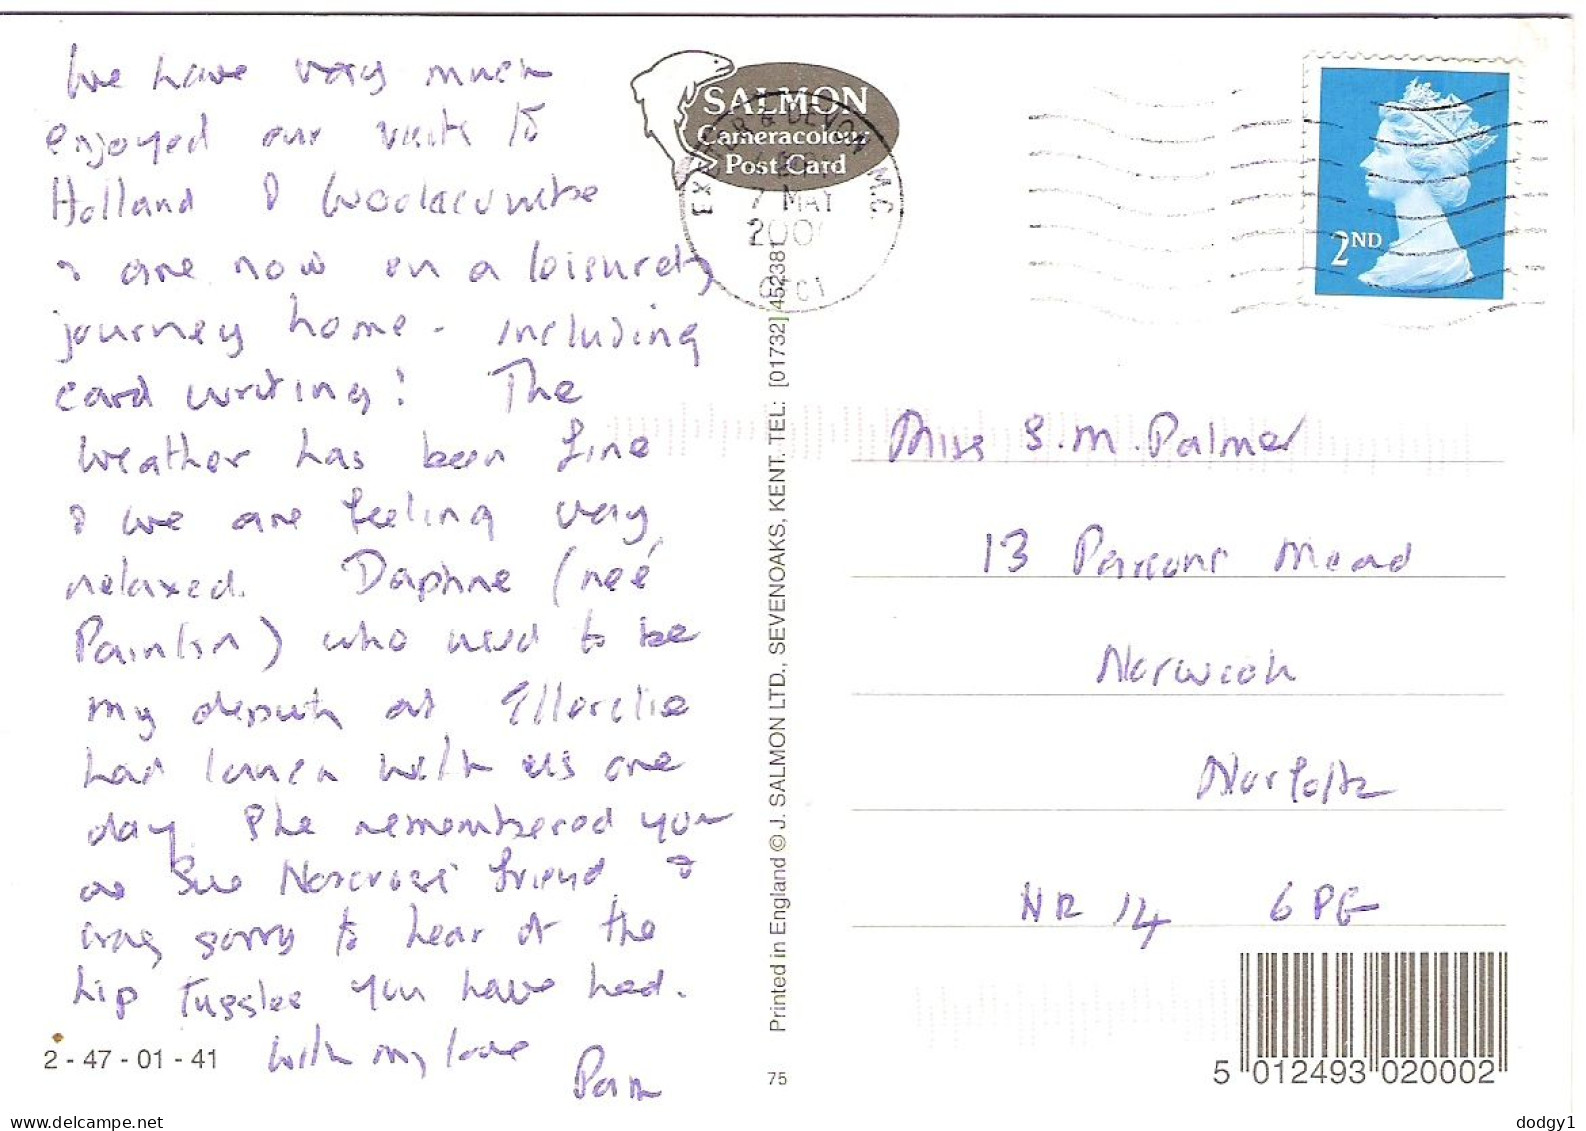 We have very much
enjoyed our visits to
Holland & Woolacumbe
& are now on a leisurely
journey home - including
card writing! The
weather has been fine
& we are feeling very
relaxed. Daphne (neé
Painlin) who used to be
my deputy at
had lunch with us one
day. She remembered you
as Sue Norcross' friend &
was sorry to hear of the
hip tussles you have had.
With my love
Pam
2 - 47 - 01 - 41
SALMON
Cameracolour
Post Card
EXETER & DEVON M.C.
7 MAY
2ND
Printed in England © J. SALMON LTD., SEVENOAKS, KENT. TEL: [01732] 452381
75
Miss S.M. Palmer
13 Parsons Mead
Norwich
Norfolk
NR 14 6PG
5 012493 020002
www.delcampe.net
dodgy1